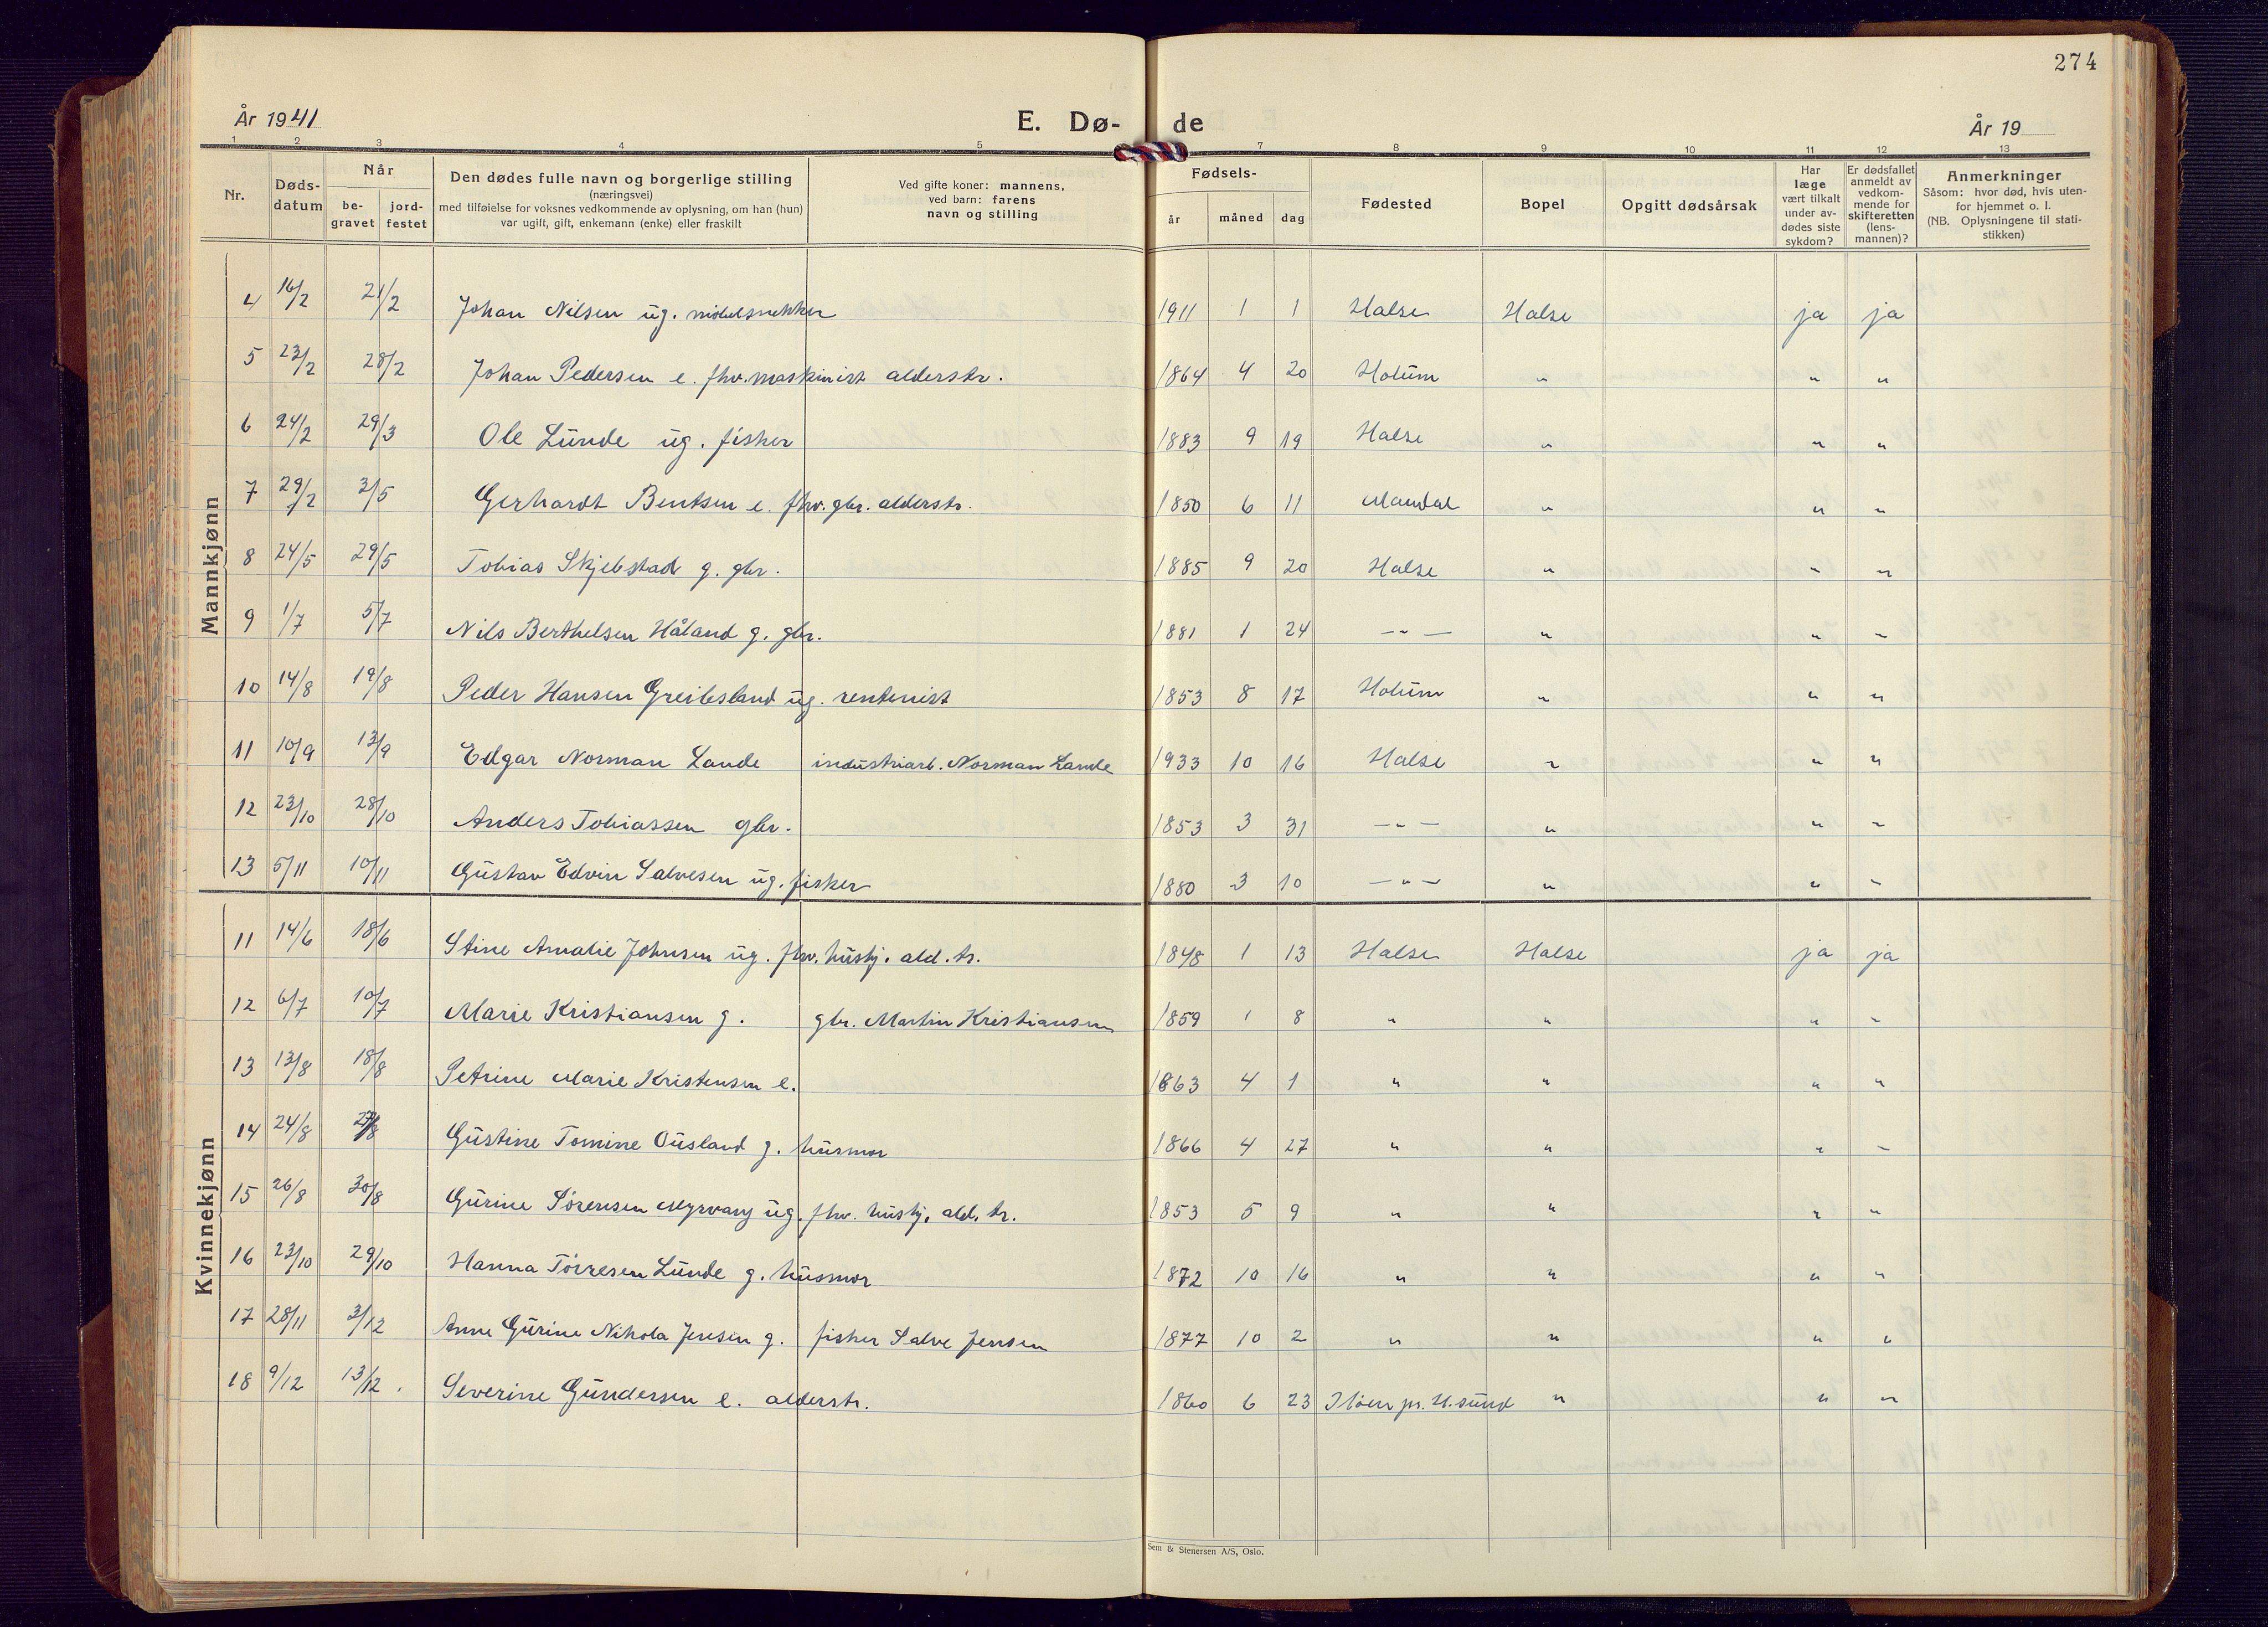 274
År 1941
E. Dø- de
År 19
1 2 3 4 5 7 8 9 10 11 12 13
Nr.
Døds-
datum
Når
be-
gravet
jord-
festet
Den dødes fulle navn og borgerlige stilling
(næringsvei)
med tilføielse for voksnes vedkommende av oplysning, om han (hun)
var ugift, gift, enkemann (enke) eller fraskilt
Ved gifte koner: mannens,
ved barn: farens
navn og stilling
Fødsels-
år
måned
dag
Fødested
Bopel
Opgitt dødsårsak
Har
læge
vært tilkalt
under av-
dødes siste
sykdom?
Er dødsfallet
anmeldt av
vedkom-
mende for
skifteretten
(lens-
mannen)?
Anmerkninger
Såsom: hvor død, hvis uten-
for hjemmet o. l.
(NB. Oplysningene til stati-
stikken)
Mannkjønn
4 16/2 21/2 Johan Nilsen ug. møbelsnekker 1911 1 1 Halse Halse ja ja
5 23/2 28/2 Johan Pedersen e. fhv. maskinist alderstr. 1864 4 20 Holum " " "
6 24/2 29/3 Ole Lunde ug. fisker 1883 9 19 Halse " " "
7 29/2 3/5 Gerhardt Bentsen e. fhv. gbr. alderstr. 1850 6 11 Mandal " " "
8 24/5 29/5 Tobias Skjebstad g. gbr. 1885 9 20 Halse " " "
9 1/7 5/7 Nils Berthelsen Håland g. gbr. 1881 1 24 — " — " " "
10 14/8 19/8 Peder Hansen Greibesland ug. rentenist 1853 8 17 Holum " " "
11 10/9 13/9 Edgar Norman Lande industriarb. Norman Lande 1933 10 16 Halse " " "
12 23/10 28/10 Anders Tobiassen gbr. 1853 3 31 — " — " " "
13 5/11 10/11 Gustav Edvin Salvesen ug. fisker 1880 3 10 — " — " " "
Kvinnekjønn
11 14/6 18/6 Stine Amalie Johnsen ug. fhv. hushj. ald. tr. 1848 1 13 Halse Halse ja ja
12 6/7 10/7 Marie Kristiansen g. gbr. Martin Kristiansen 1859 1 8 " " " "
13 13/8 18/8 Petrine Marie Kristensen e. 1863 4 1 " " " "
14 24/8 27/8 Gustine Tomine Ousland g. husmor 1866 4 27 " " " "
15 26/8 30/8 Gurine Sørensen Myrvang ug. fhv. hushj. ald. tr. 1853 5 9 " " " "
16 23/10 29/10 Hanna Torresen Lunde g. husmor 1872 10 16 " " " "
17 28/11 3/12 Anne Gurine Nikola Jensen g. fisker Salve Jensen 1877 10 2 " " " "
18 9/12 13/12 . Severine Gundersen e. alderstr. 1860 6 23 pr. H.sund " " "
Sem & Stenersen A/S, Oslo.